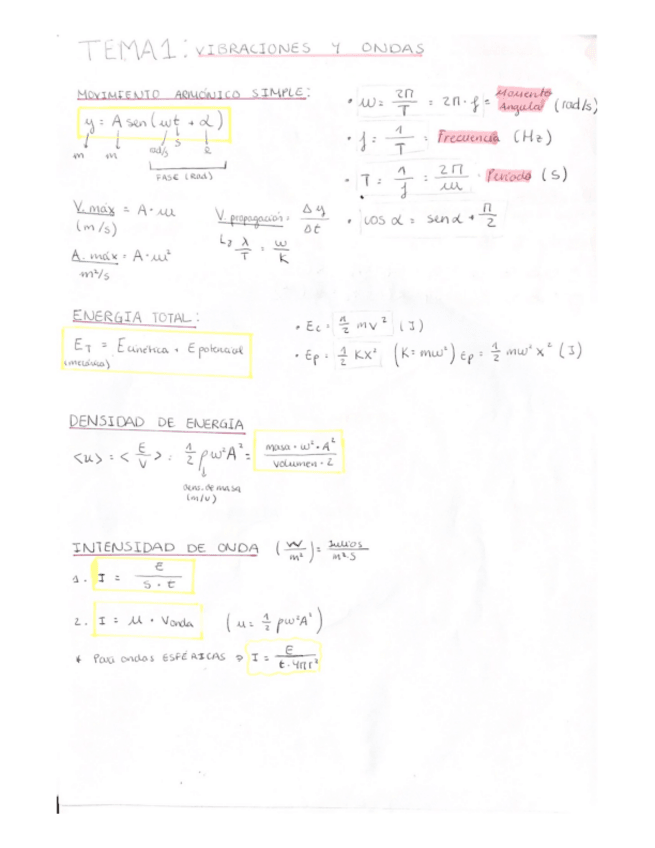 TEMA 1: VIBRACIONES Y ONDAS
MOVIMIENTO ARMÓNICO SIMPLE:
y = A sen (ωt + α)
m m rad/s s
FASE (RAD)
• ω = 2Π/T = 2Π · f = Momento Angular (rad/s)
• f = 1/T = Frecuencia (Hz)
• T = 1/f = 2Π/ω · Período (s)
• cos α = sen α + Π/2
V. máx = A · ω
(m/s)
V. propagación = Δy/Δt
↳ λ/T = ω/K
A. máx = A · ω²
m²/s
ENERGIA TOTAL:
E_T = E cinética + E potencial
(mecánica)
• Ec = 1/2 mv² (J)
• Ep = 1/2 Kx² (K = mω²) Ep = 1/2 mω² x² (J)
DENSIDAD DE ENERGIA
<u> = <E/V> = 1/2 ρω²A² = masa · ω² · A² / volumen · 2
dens. de masa
(m/v)
INTENSIDAD DE ONDA (W/m²) = Julios/m²·s
1. I = E / S · t
2. I = u · Vonda (u = 1/2 ρω²A²)
* Para ondas ESFÉRICAS → I = E / t · 4Πr²